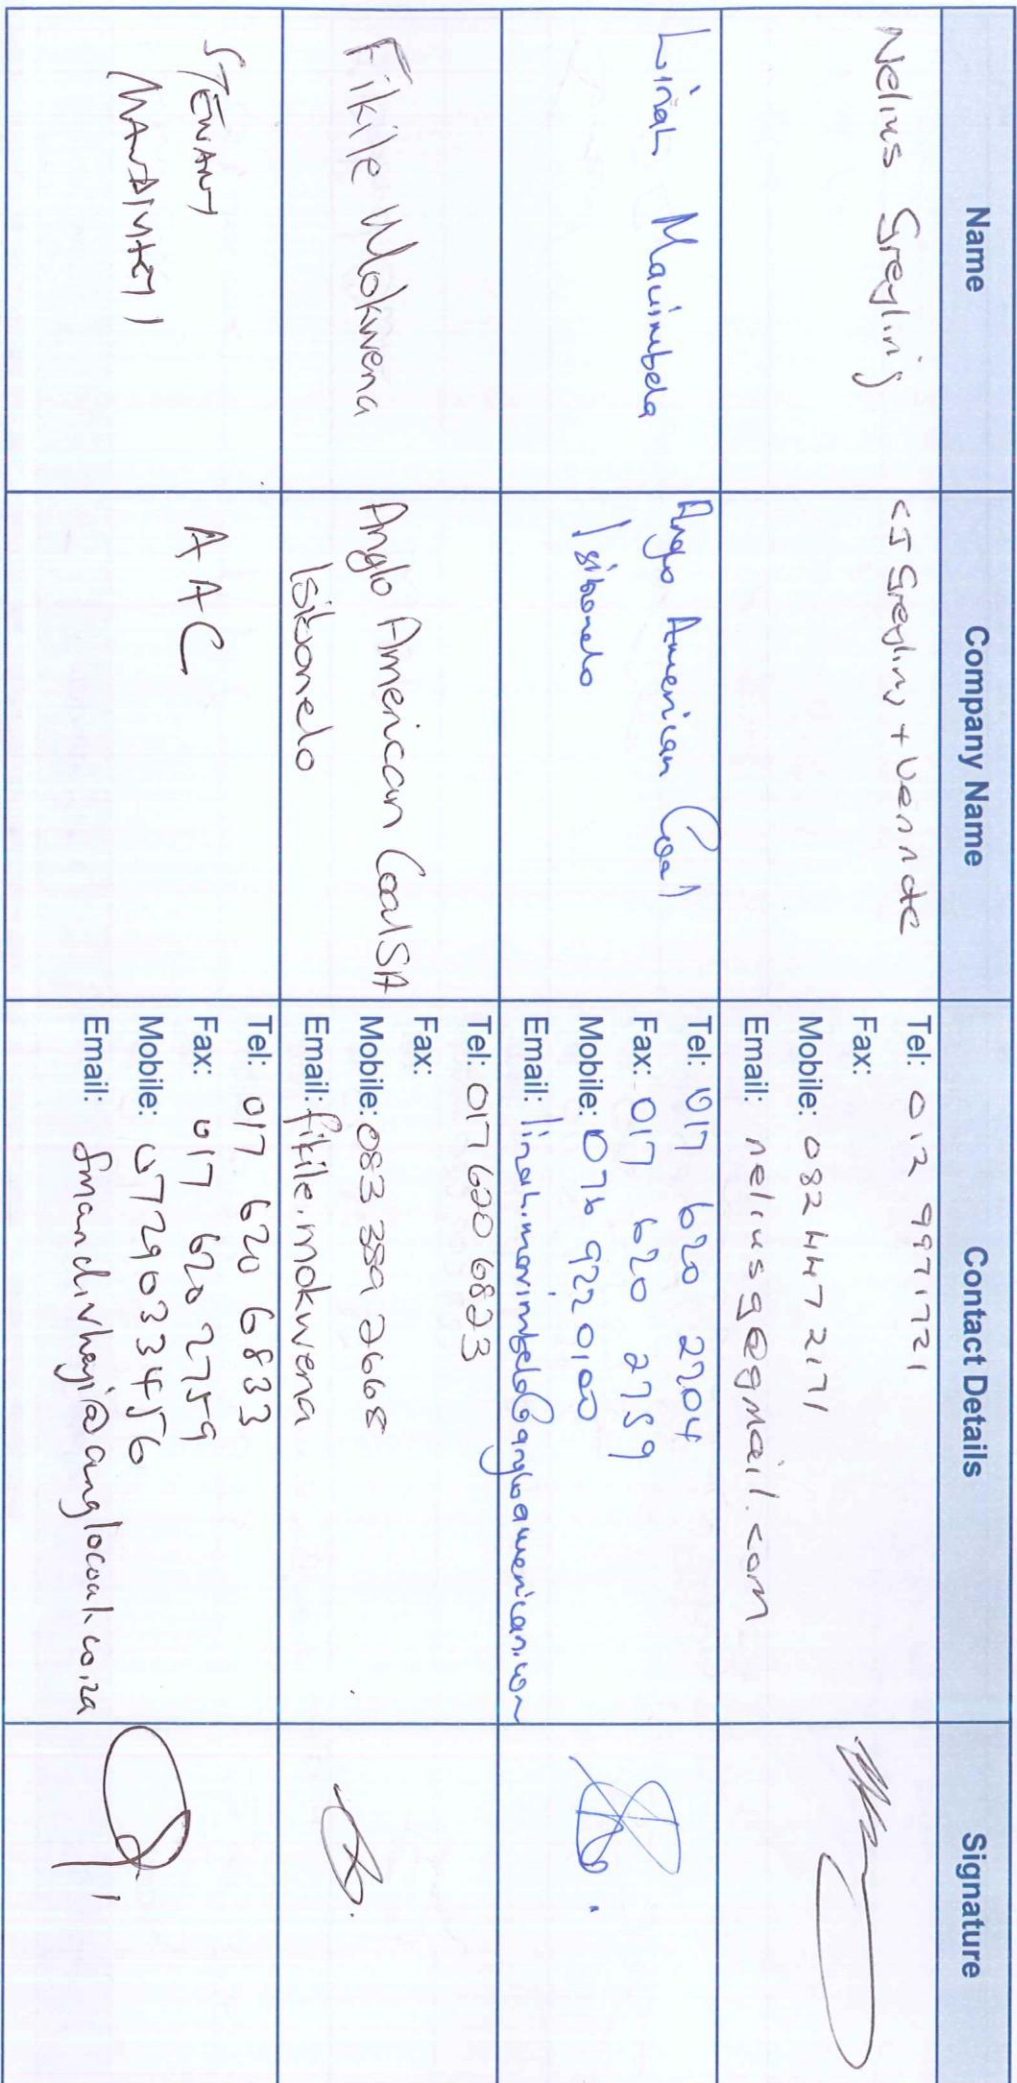 Name Company Name Contact Details Signature
Nelius Greyling
CJ Greyling + Vennote
Tel: 012 9971721
Fax:
Mobile: 082 447 2171
Email: neliusg@gmail.com
Linah Mavimbela
Anglo American Coal
Isibonelo
Tel: 017 620 2704
Fax: 017 620 2759
Mobile: 076 922 0100
Email: linah.mavimbela@angloamerican.com
Fikile Mokwena
Anglo American Coal SA
Isibonelo
Tel: 017 620 6823
Fax:
Mobile: 083 389 2668
Email: fikile.mokwena
STEWART
AAC
Tel: 017 620 6833
Fax: 017 620 2759
Mobile: 0729033456
Email: smandivheyi@anglocoal.co.za